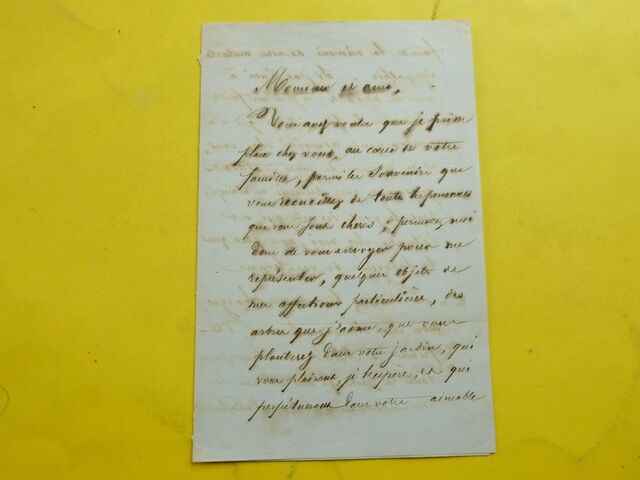 Monsieur et ami,
Vous avez voulu que je prisse
place chez vous, au cœur de votre
famille, parmi les souvenirs que
vous recueillez de toutes les personnes
qui vous sont chères, permettez moi
donc de vous envoyer pour me
représenter, quelques objets de
mes affections particulières, des
arbres que j'aime, que vous
planterez dans votre jardin, qui
vous plairont, je l'espère, et qui
perpétueront dans votre aimable